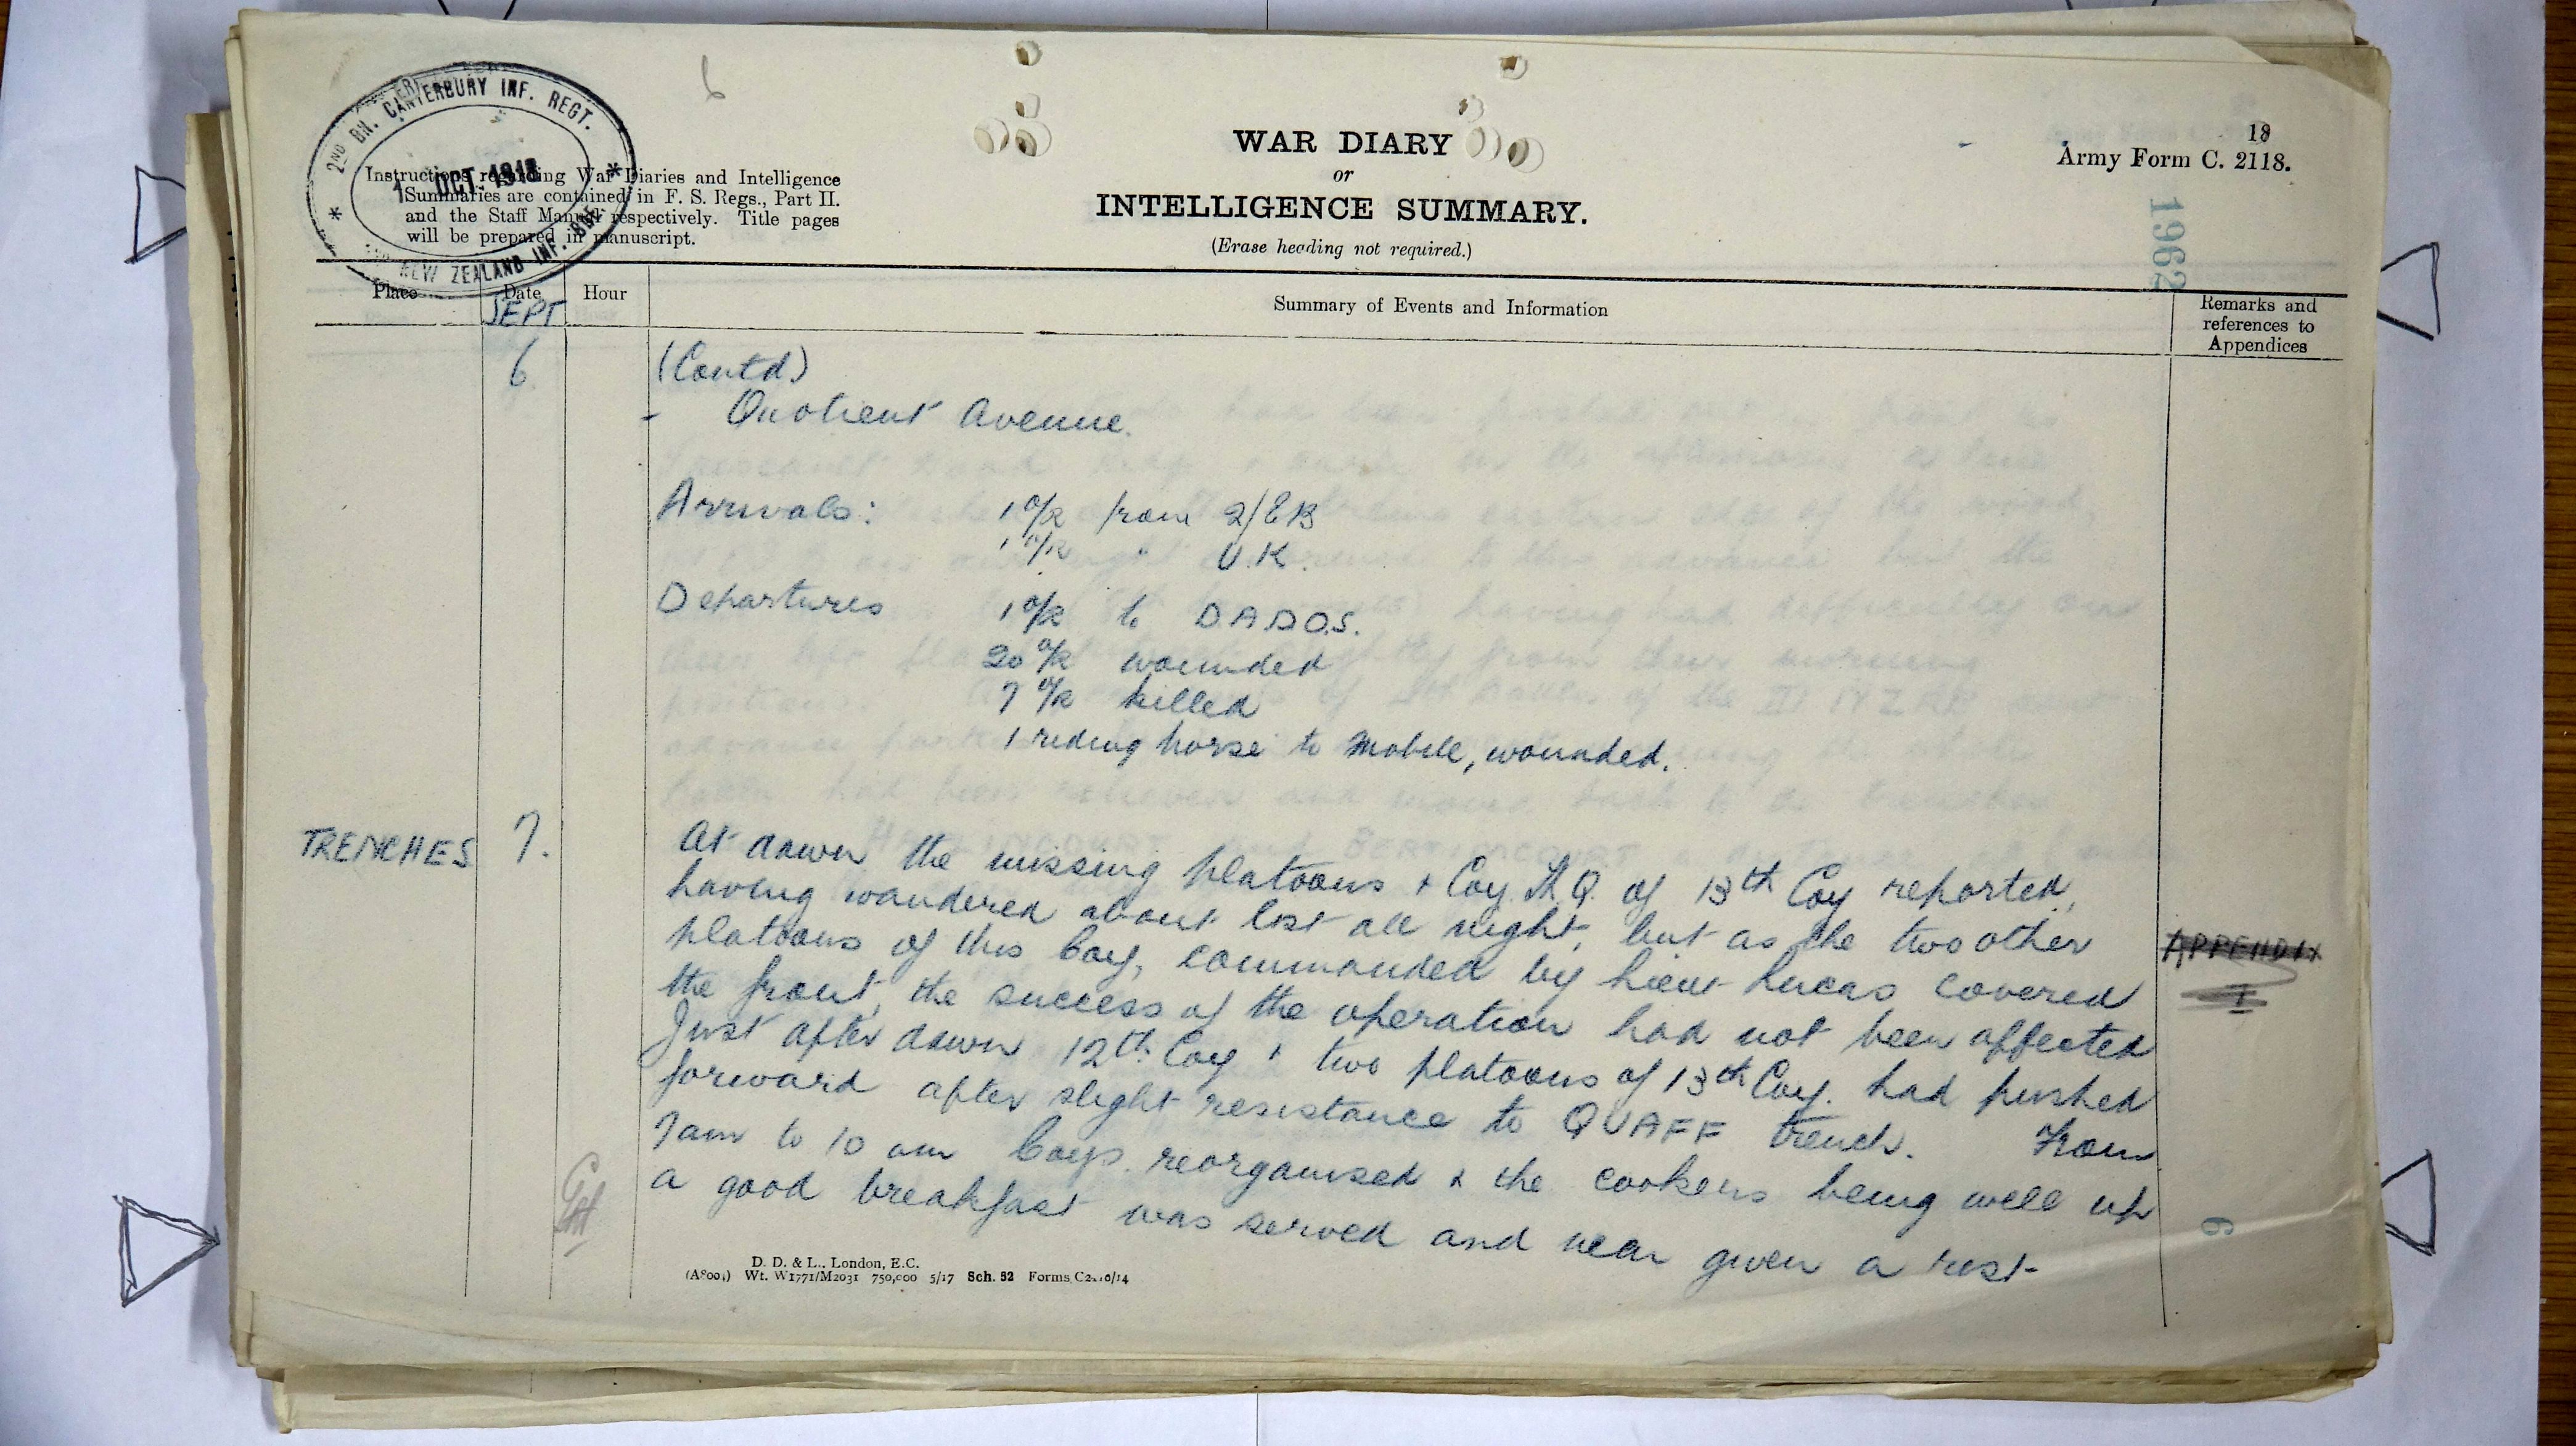 2ND BN. CANTERBURY INF. REGT.
1 OCT. 1918
NEW ZEALAND INF. BDE.
6
Instructions regarding War Diaries and Intelligence
Summaries are contained in F. S. Regs., Part II.
and the Staff Manual respectively. Title pages
will be prepared in manuscript.
WAR DIARY
or
INTELLIGENCE SUMMARY.
(Erase heading not required.)
18
Army Form C. 2118.
1962
Place
Date
Hour
Summary of Events and Information
Remarks and
references to
Appendices
SEPT
6 (Contd)
- Quotient Avenue.
Arrivals: 1 O/R from 2/EB
1 O/R " U.K.
Departures 1 O/R to D.A.D.O.S.
20 O/R wounded
7 O/R killed
1 riding horse to Mobile, wounded.
TRENCHES 7. At dawn the missing platoons & Coy H.Q. of 13th Coy reported,
having wandered about lost all night, but as the two other
platoons of this Coy, commanded by Lieut Lucas covered
the front, the success of the operation had not been affected
Just after dawn 12th Coy & two platoons of 13th Coy. had pushed
forward after slight resistance to QUAFF trench. From
7am to 10 am Coys. reorganised & the cookers being well up
a good breakfast was served and men given a rest-
APPENDIX
I
6
D. D. & L., London, E.C.
(A8004) Wt. W1771/M2031 750,000 5/17 Sch. 52 Forms C2118/14